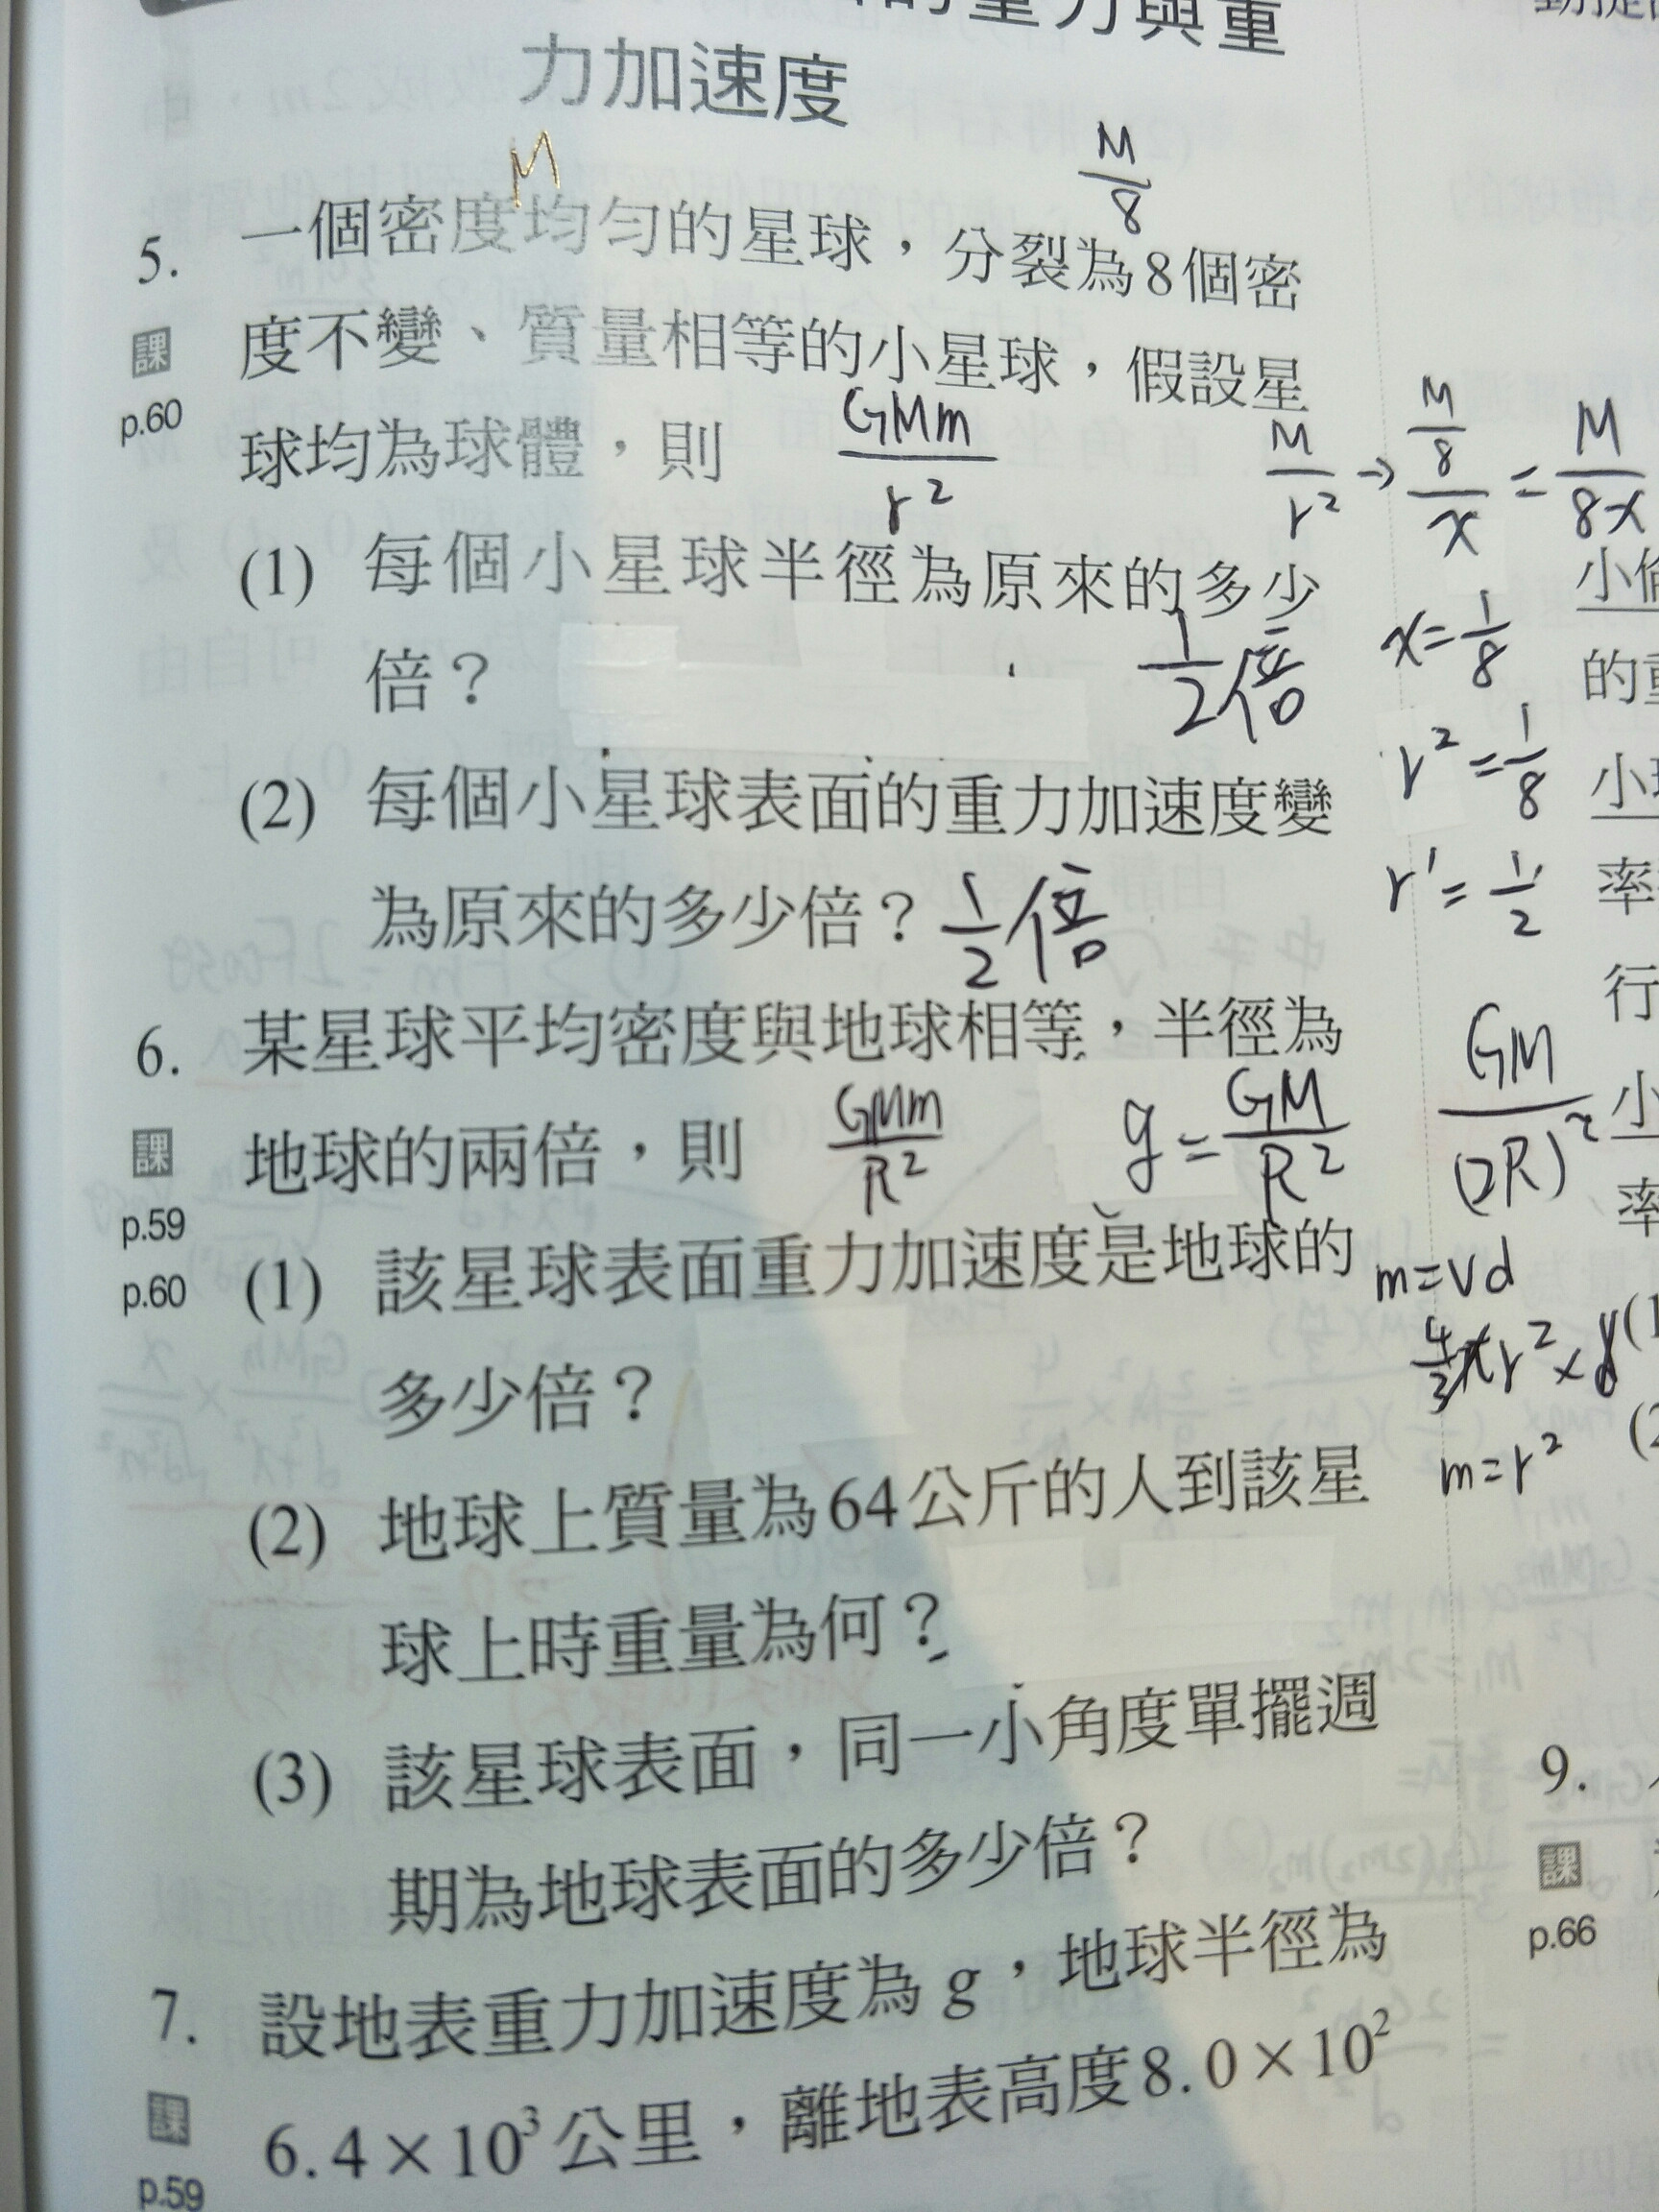 的重力與重
力加速度
M
M/8
5. 一個密度均勻的星球，分裂為8個密
課 度不變、質量相等的小星球，假設星
p.60
球均為球體，則 GMm/r² M/r² → (M/8)/x = M/8x
(1) 每個小星球半徑為原來的多少
倍？ 1/2倍 x=1/8
r²=1/8
(2) 每個小星球表面的重力加速度變
為原來的多少倍？ 1/2倍 r'=1/2
6. 某星球平均密度與地球相等，半徑為
課 地球的兩倍，則 GMm/R² g=GM/R² GM/(2R)²
p.59
p.60
(1) 該星球表面重力加速度是地球的
m=Vd
多少倍？ 4/3πr²×d
m=r²
(2) 地球上質量為64公斤的人到該星
球上時重量為何？
(3) 該星球表面，同一小角度單擺週
期為地球表面的多少倍？
7. 設地表重力加速度為 g，地球半徑為
課 6.4×10³公里，離地表高度8.0×10²
p.59
小
的
小
率
行
小
率
(1
(2
9.
課
p.66